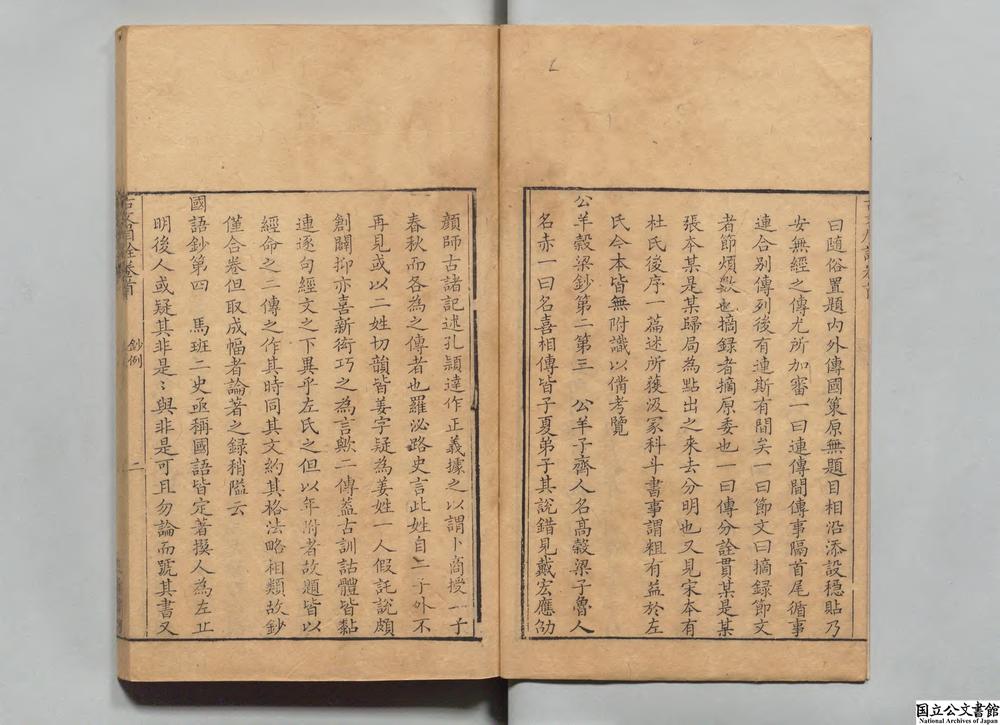 曰隨俗置題內外傳國策原無題目相沿添設穩貼乃
安無經之傳尤所加審一曰連傳間傳事隔首尾循事
連合別傳列後有連斯有間矣一曰節文曰摘録節文
者節煩數也摘録者摘原委也一曰傳分詮貫某是某
張本某是某歸局為點出之来去分明也又見宋本有
杜氏後序一篇述所獲汲冡科斗書事謂粗有益於左
氏今本皆無附識以備考覽
公羊榖梁鈔第二第三　公羊子齊人名高榖梁子魯人
名赤一曰名喜相傳皆子夏弟子其說錯見戴宏應劭
顏師古諸記述孔頴達作正義據之以謂卜商授二子
春秋而各為之傳者也羅泌路史言此姓自二子外不
再見或以二姓切韻皆姜字疑為姜姓一人假託說頗
創闢抑亦喜新術巧之為言歟二傳葢古訓詁體皆黏
連逐句經文之下異乎左氏之但以年附者故題皆以
經命之二傳之作其時同其文約其格法略相類故鈔
僅合卷但取成幅者論著之録稍隘云
國語鈔第四　馬班二史亟稱國語皆定著撰人為左丘
明後人或疑其非是〻與非是可且勿論而號其書又
古文眉詮卷首
鈔例
二
国立公文書館
National Archives of Japan